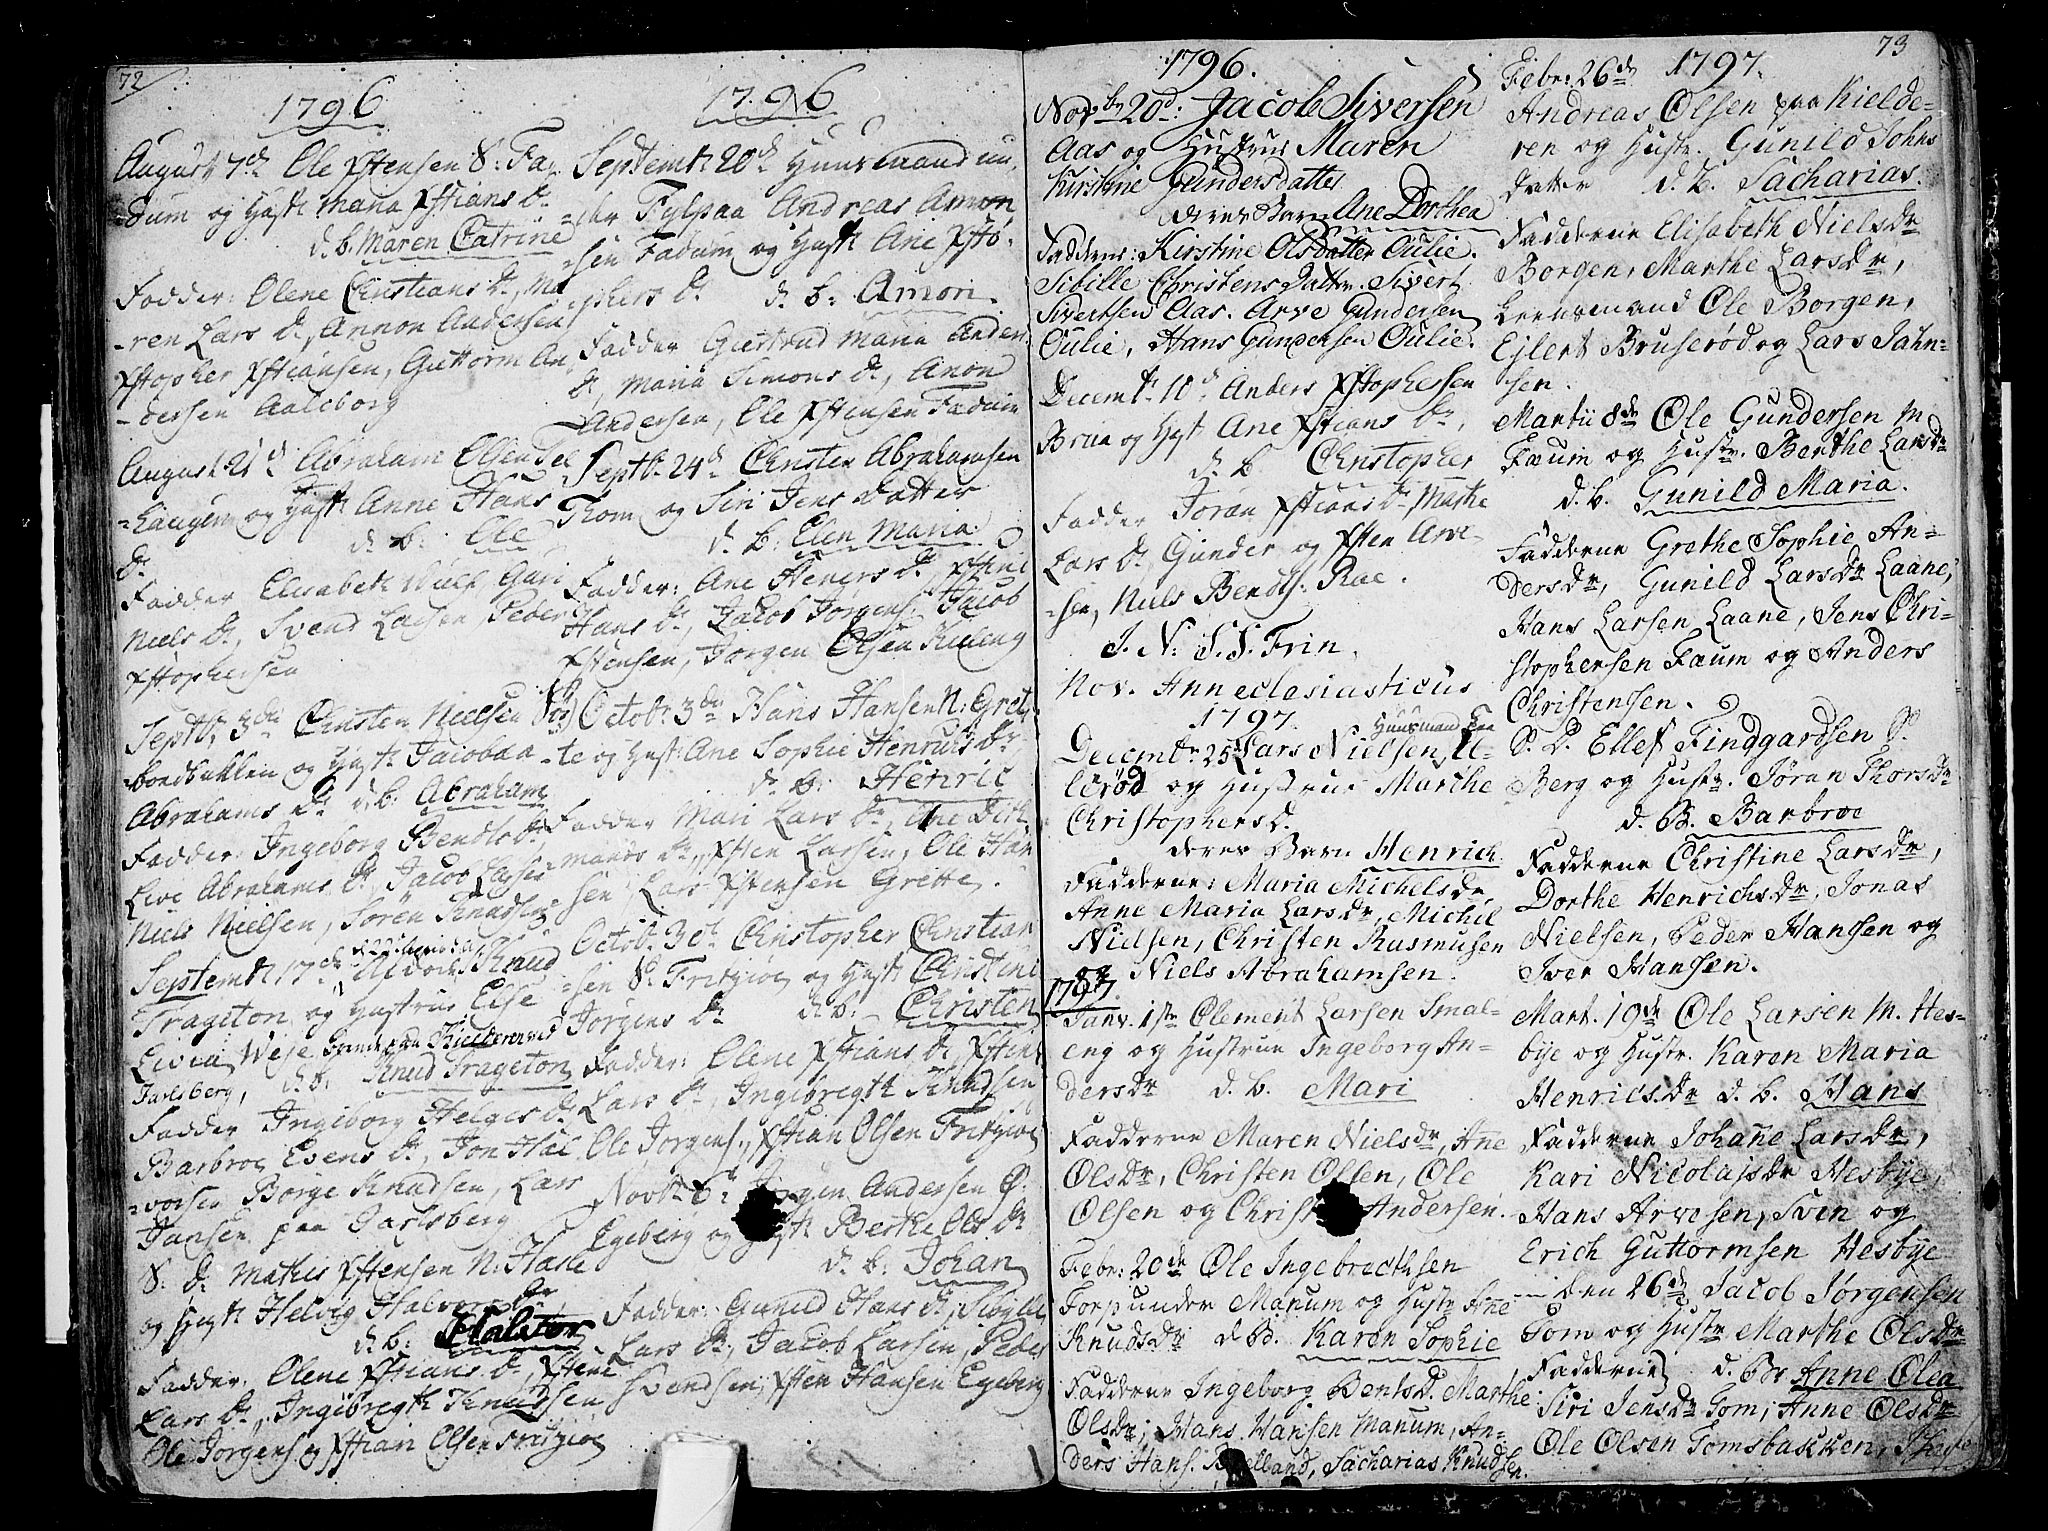 72
1796
August 7de Ole Xstensen S: Fa,
-dum og Hust: Maria Xstians Dr
d. b. Maren Catrine
Fadder: Olene Christians Dr, Ma
-ren Lars Dr, Annon Andersen
Xstopher Xstiansen, Guttorm An
-dersen Aaleborg
August 21d Abraham Olsen
-haugen og Hust: Anne Hans
Dr
d. b: Ole
Fadder Elisabeth Gari
Niels Dr, Svend Larsen Peder
Xstophersen
Septb: 3de Christen Nielsen
bondbakken og Hust: Jacobaa
Abrahams Dr d. b: Abraham
Fadder: Ingeborg Bendts Dr,
Live Abrahams Dr, Jacob
Niels Nielsen, Søren Knudsen
Septembr 17de Knud
Trageton og Hustrue Else
Livia Weje
Jarlsberg, d. b. Knud Trageton
Fadder Ingeborg Helges Dr
Barbroe Evens Dr, Jon Hal
-vorsen Børge Knudsen, Lars
Jansen paa Jarlsberg
S. D. Mathis Xstensen N: Hasle
og Hust: Helvig Halvors Dr
d. b: Halvor
Fadder: Olene Xstians Dr,
Lars Dr, Ingebregth Knudsen
Ole Jorgens: og Xstian Olsen
1796
Septemb: 20d Huusmand un,
-der Fylpaa Andreas Amon
-sen Fadum og Hust: Ane Xsto-
-phers Dr d. b: Amon.
Fadder Giertrud Maria Anders
Dr, Maria Simons Dr, Anon
Andersen, Ole Xstensen Fadum
Septb: 24d Christen Abrahamsen
Thom og Siri Jens Datter
d. b: Elen Maria
Fadder: Ane Dr,
Hans Dr, Jacob Jorgens: Jacob
Xstensen, Jørgen Olsen
Octob: 3de Hans Hansen N: Gret-
-te og Hust: Ane Sophie Henrichs Dr
d. b: Henric
Fadder Mari Lars Dr, Ane
Dr, Xsten Larsen, Ole Han
-sen, Lars Xstensen Grette.
Octob: 30d Christopher Christian
-sen og Hust: Christine
Jorgens Dr d. b: Christen
Fadder: Olene Xstians Dr,
Lars Dr, Ingebregth Knudsen
Ole Jorgens:, Xstian Olsen
Novbr 6d Jørgen Andersen Ø.
Egeberg og Hust: Berthe Ols Dr
d. b: Johan
Fadder: Gunild Hans Dr, Sibylle
Lars Dr, Jacob Larsen, Peder
Svendsen, Xsten Hansen Egeberg
73
1796.
Novbr 20d: Jacob Siversen
Aas og Hustrue Maren
Kirstine Gundersdatter
deres Barn Ane Dorthea
Fadderne: Kirstine Olsdatter Oulie.
Sibille Christens Datter. Sivert
Sivertsen Aas. Arve Gundersen
Oulie, Hans Gundersen Oulie.
Decembr 10d Anders Xstophersen
Brua og Hust: Ane Xstians Dr,
d. b. Christopher
Fadder Joran Xstians Dr Marthe
Lars Dr, Gunder og Xsten Arve-
-sen, Niels Bendts: Rae.
I. N: S. S. Trin.
Nov. Ann eclesiasticus
1797.
Huusmand
Decmbr: 25 Lars Nielsen, El-
lerød og Hustrue Marthe
Christophersd.
deres Barn Henrich
Fadderne: Maria Michelsdr,
Anne Maria Larsdr, Michil
Nielsen, Christen Rasmusen
og Niels Abrahamsen.
1797.
Janv. 1ste Clement Larsen Smal-
eng og Hustrue Ingeborg An-
dersdr d. b. Mari
Fadderne Maren Nielsdr, Ane
Olsdr, Christen Olsen, Ole
Olsen og Christ Andersen.
Febr: 20de Ole Ingebrecthsen
Torp under Manum og Hustr Ane
Knudsdr d. B. Karen Sophie
Fadderne Ingeborg Bentsd. Marthe
Olsdr; Hans Hansen Manum, An-
ders Hans. Sacharias Knudsen.
1797.
Febr: 26de
Andreas Olsen paa Kielde-
ren og Hustr. Gunild Johns
Datter d. b. Sacharias.
Fadderne Elisabeth Nielsdr
Borgen, Marthe Larsdr,
Leensmand Ole Borgen,
Ejlert Bruserød og Lars Jahn-
sen.
Martii 8de Ole Gundersen M
Fæum og Hustr. Berthe Larsdr
d. b. Gunild Maria.
Fadderne Grethe Sophie An-
dersdr, Gunild Larsdr Laane,
Hans Larsen Laane, Jens Chri-
stophersen Fæum og Anders
Christensen.
S. D. Ellef Findgardsen S.
Berg og Hustr. Jøran Thorsdr
d. B. Barbroe
Fadderne Christine Larsdr,
Dorthe Henrichsdr, Jonas
Nielsen, Peder Hansen og
Iver Hansen.
Mart. 19de Ole Larsen M. Hes-
bye og Hustr. Karen Maria
Henricsdr d. b. Hans
Fadderne Johane Larsdr,
Kari Nicolajsdr Hesbye,
Hans Arvesen, Sven og
Erich Guttormsen Hesbye
– den 26de Jacob Jørgensen
Tom og Hustr Marthe Olsdr
Fadderne d. B. Anne Olea
Siri Jensdr Tom; Anne Olsdr
Ole Olsen Tomsbakken,